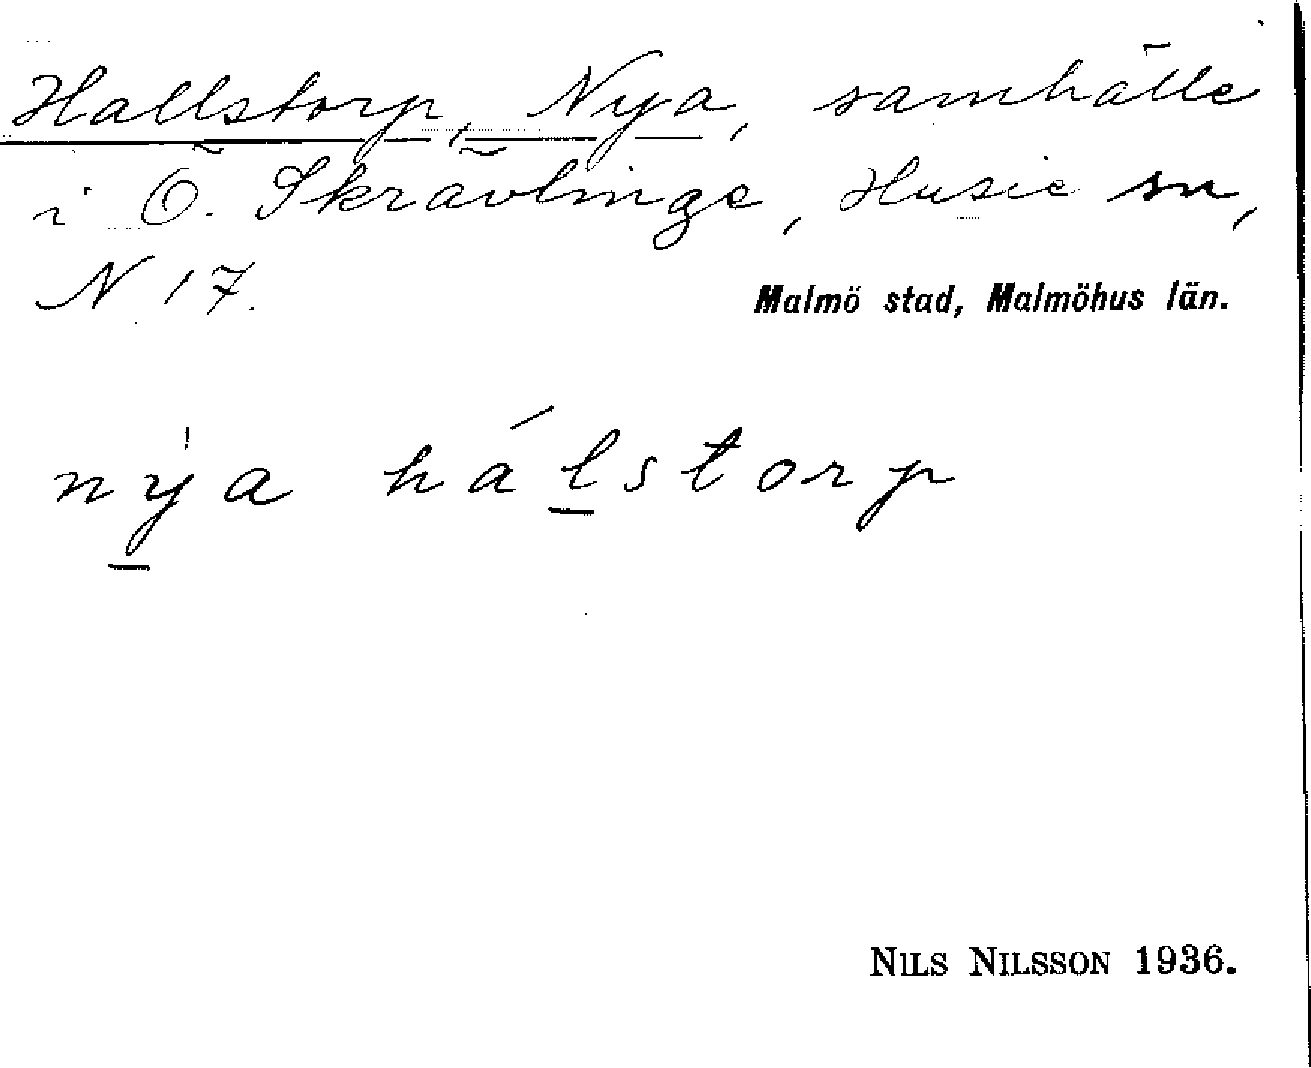 Hallstorp, Nya, samhälle
i Ö. Skrävlinge, Husie sn,
N 17.
Malmö stad, Malmöhus län.
nýa hálstorp
NILS NILSSON 1936.